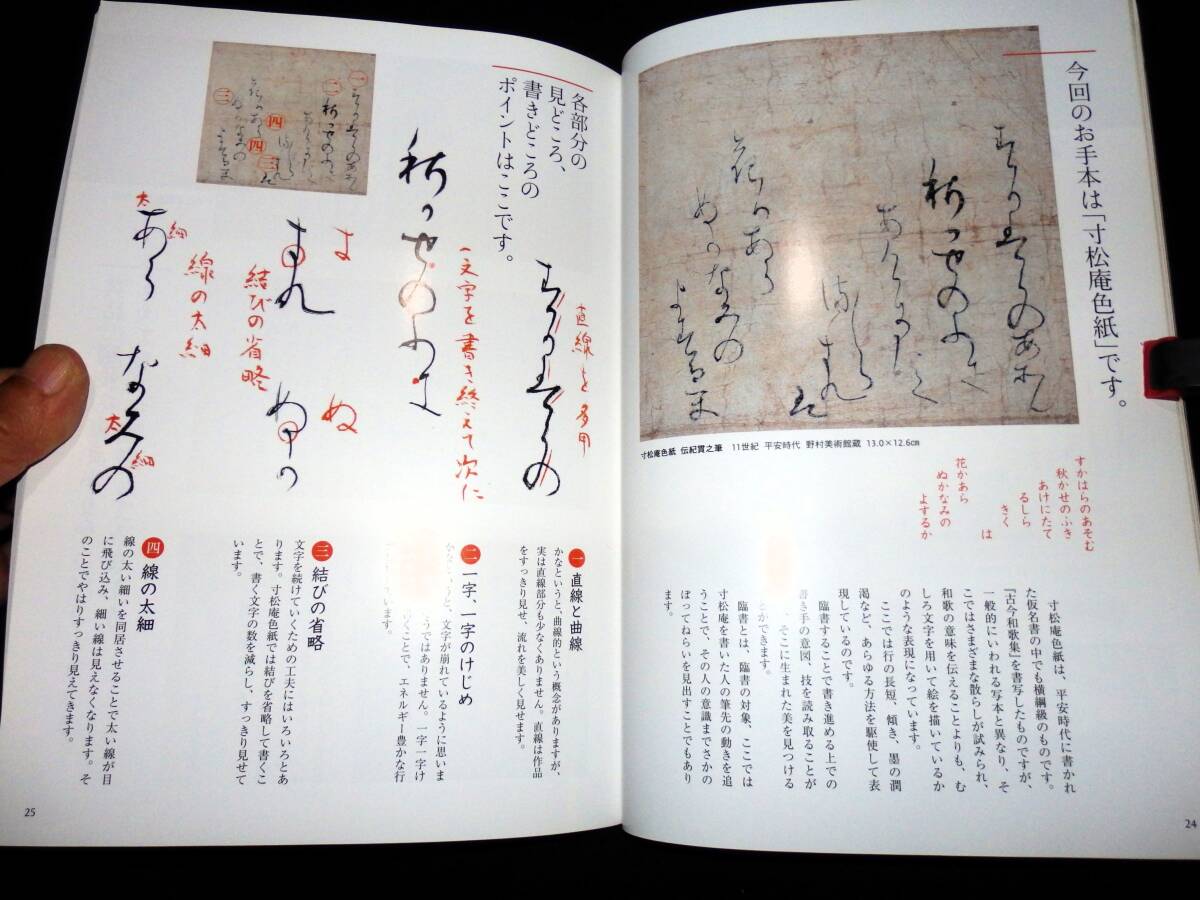 今回のお手本は「寸松庵色紙」です。
寸松庵色紙 伝紀貫之筆 11世紀 平安時代 野村美術館蔵 13.0×12.6cm
すかはらのあそむ
秋かせのふき
あけにたて
るしら
きく
は
花かあら
ぬかなみの
よするか
寸松庵色紙は、平安時代に書かれ
た仮名書の中でも横綱級のものです。
『古今和歌集』を書写したものですが、
一般的にいわれる写本と異なり、そ
こではさまざまな散らしが試みられ、
和歌の意味を伝えることよりも、む
しろ文字を用いて絵を描いているか
のような表現になっています。
ここでは行の長短、傾き、墨の潤
渇など、あらゆる方法を駆使して表
現しているのです。
臨書することで書き進める上での
書き手の意図、技を読み取ることが
、そこに生まれた美を見つける
とができます。
臨書とは、臨書の対象、ここでは
寸松庵を書いた人の筆先の動きを追
うことで、その人の意識までさかの
ぼってねらいを見出すことでもあり
ます。
24
各部分の
見どころ、
書きどころの
ポイントはここです。
一
二
三
四
四
三
直線を多用
一文字を書き終えて次に
ま
ぬ
結びの省略
線の太細
太
細
太
細
一 直線と曲線
かなというと、曲線的という概念がありますが、
実は直線部分も少なくありません。直線は作品
をすっきり見せ、流れを美しく見せます。
二 一字、一字のけじめ
と、文字が崩れているように思いま
うではありません。一字一字け
くことで、エネルギー豊かな行
います。
三 結びの省略
文字を続けていくための工夫にはいろいろとあ
ります。寸松庵色紙では結びを省略して書くこ
とで、書く文字の数を減らし、すっきり見せて
います。
四 線の太細
線の太い細いを同居させることで太い線が目
に飛び込み、細い線は見えなくなります。そ
のことでやはりすっきり見えてきます。
25